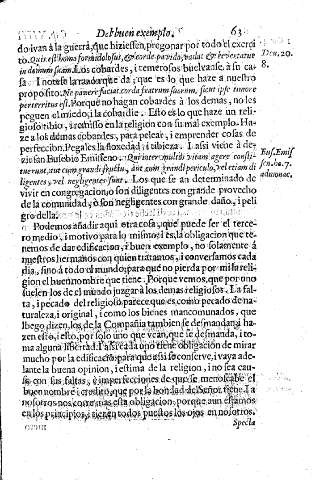 Del buen exemplo. 63
do ivan à la guerra, que hiziessen, pregonar por todo el exerci
to. Quis est homo formidolosus, & corde pavido, vadat & revertatur
in domum suam. Los cobardes, i temerosos buelvanse. à su ca-
sa. I notese la razon que dà; que es lo que haze a nuestro
proposito. Ne pavere faciat corda fratrum suorum, sicut ipse timore
perterritus est. Porque no hagan cobardes à los demas, no les
peguen el miedo, i la cobardia. Esto es lo que haze un reli
gioso tibio, i remisso en la religion con su mal exemplo. Ha-
ze a los demas cobardes, para pelear, i emprender cosas de
perfeccion. Pegales la floxedad, i tibieza. I assi viene à de-
zir san Eusebio Emisseno. Qui inter multos vitam agere consti-
tuerunt, aut cum grandi fructu, aut cum grandi periculo, vel etiam di
ligentes, vel negligentes sunt. Los que se an determinado de
vivir en congregacion, o son diligentes con grande provecho
de la comunidad, ò son negligentes con grande daño, i peli
gro della.
Podemos añadir aqui otra cosa, que puede ser el terce-
ro medio, i motivo para lo mismo; i es la obligacion que te-
nemos de dar edificacion, i buen exemplo, no solamente à
nuestros hermanos con quien tratamos, i conversamos cada
dia, sino à todo el mundo, para que no pierda por mi la reli-
gion el buen nombre que tiene. Porque vemos, que por uno
suelen los de el mundo juzgar à los demas religiosos. La fal-
ta, i pecado del religioso parece que es como pecado de na-
turaleza, i original, i como los bienes mancomunados, que
luego dizen, los de la Compañia tambien se desmandan; i ha
zen esto, i esto, por solo uno que vean, que se desmanda, i to-
ma alguna libertad. I assi cada uno tiene obligacion de mirar
mucho por la edificacion, para que assi se conserve, i vaya ade-
lante la buena opinion, i estima de la religion, i no sea cau-
sa con sus faltas, è imperfecciones de que se menoscabe el
buen nombre i credito, que por la bondad de Señor tiene. I a
nosotros nos corre mas esta obligacion, porque aun estamos
en los principios, i tienen todos puestos los ojos en nosotros.
Specta
Deu. 20.
8.
Eus. Emis
sen. ho. 7.
ad monac.